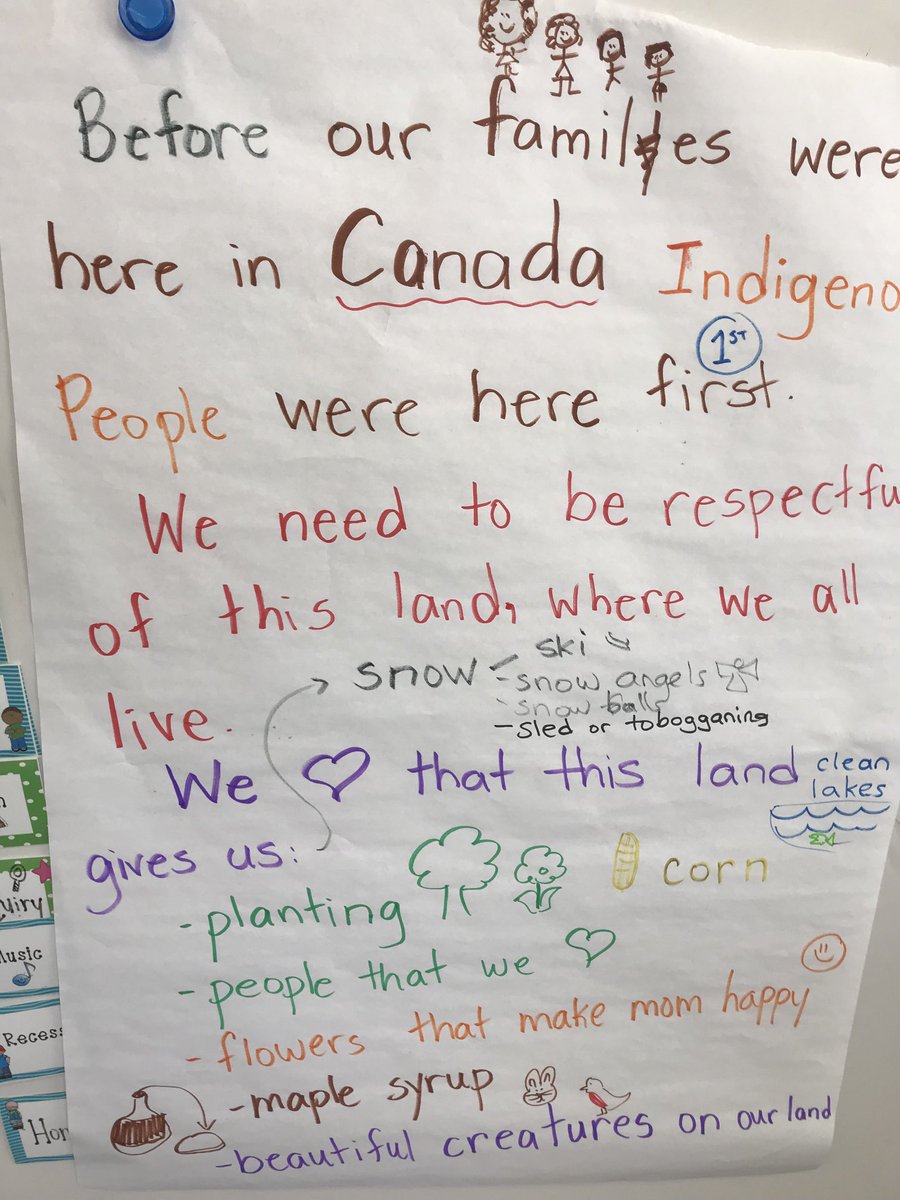 Before our families were
here in Canada Indigeno
1ST
People were here first.
We need to be respectfu
of this land, where we all
live.
snow - ski
- snow angels
- snow balls
- sled or tobogganing
We ♡ that this land
clean
lakes
gives us:
corn
- planting
- people that we ♡
- flowers that make mom happy
- maple syrup
- beautiful creatures on our land
uiry
Music
Recess
Hom